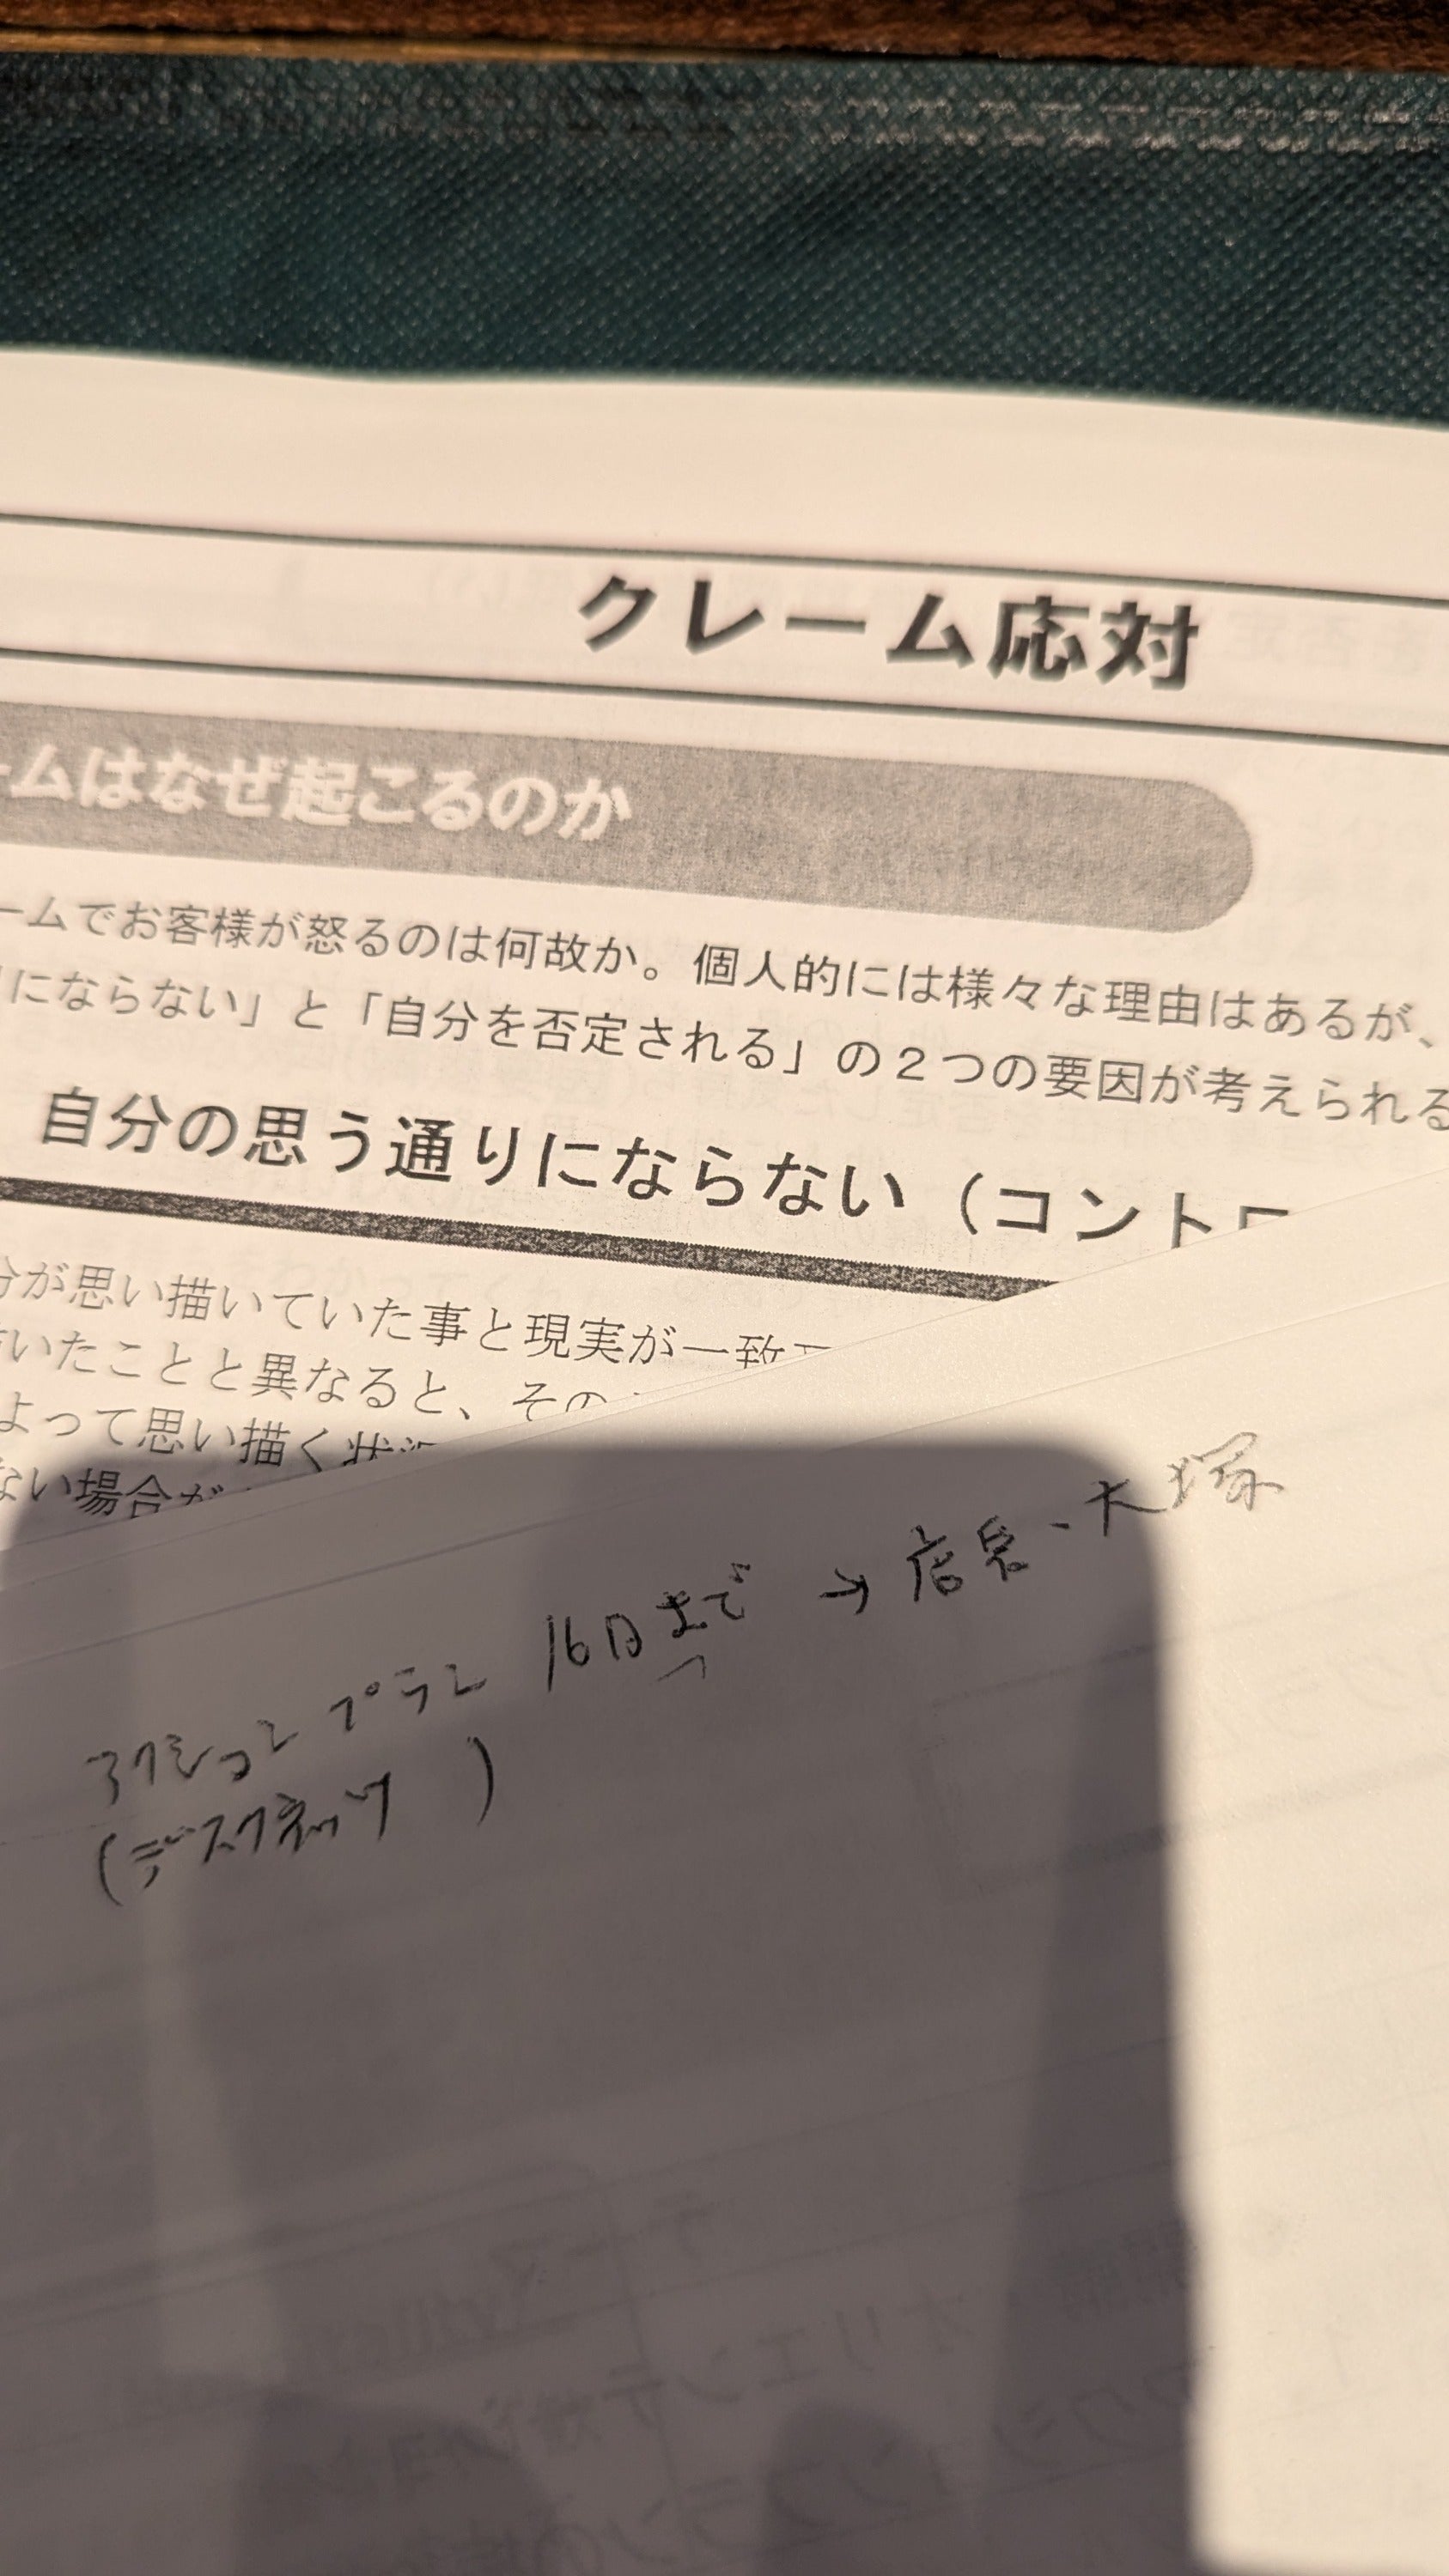 クレーム応対
ームはなぜ起こるのか
ームでお客様が怒るのは何故か。個人的には様々な理由はあるが、
にならない」と「自分を否定される」の２つの要因が考えられる
自分の思う通りにならない（コント
分が思い描いていた事と現実が一致
いたことと異なると、その
よって思い描く状
ない場合が
アクションプラン 16日まで → 店長・大塚
(デスクネッツ )